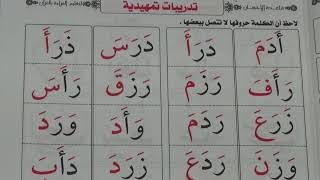 تدريبات تمهيدية
لاحظ أن الكلمة حروفها لا تتصل ببعضها .
أَدَمَ دَرَأَ دَرَسَ ذَرَأَ
رَأَفَ رَزَمَ رَزَقَ رَأَسَ
زَرَعَ رَدَمَ وَأَدَ وَرَدَ
وَزَنَ رَدَعَ زَرَدَ دَأَبَ